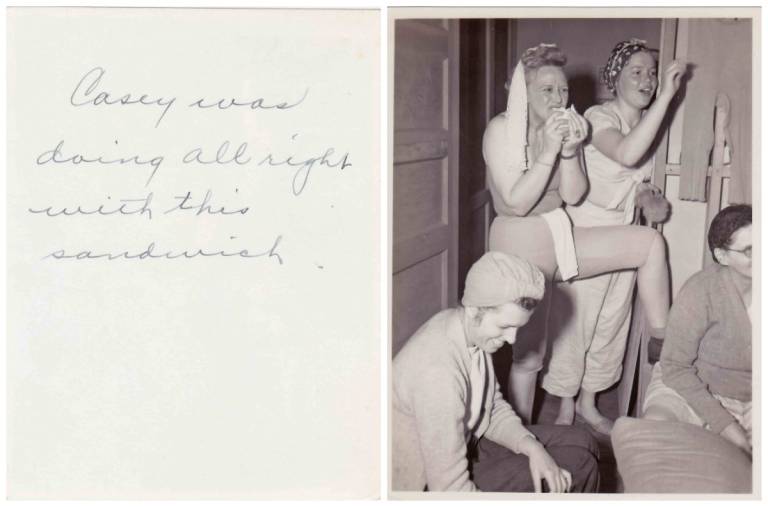 Casey was
doing all right
with this
sandwich.